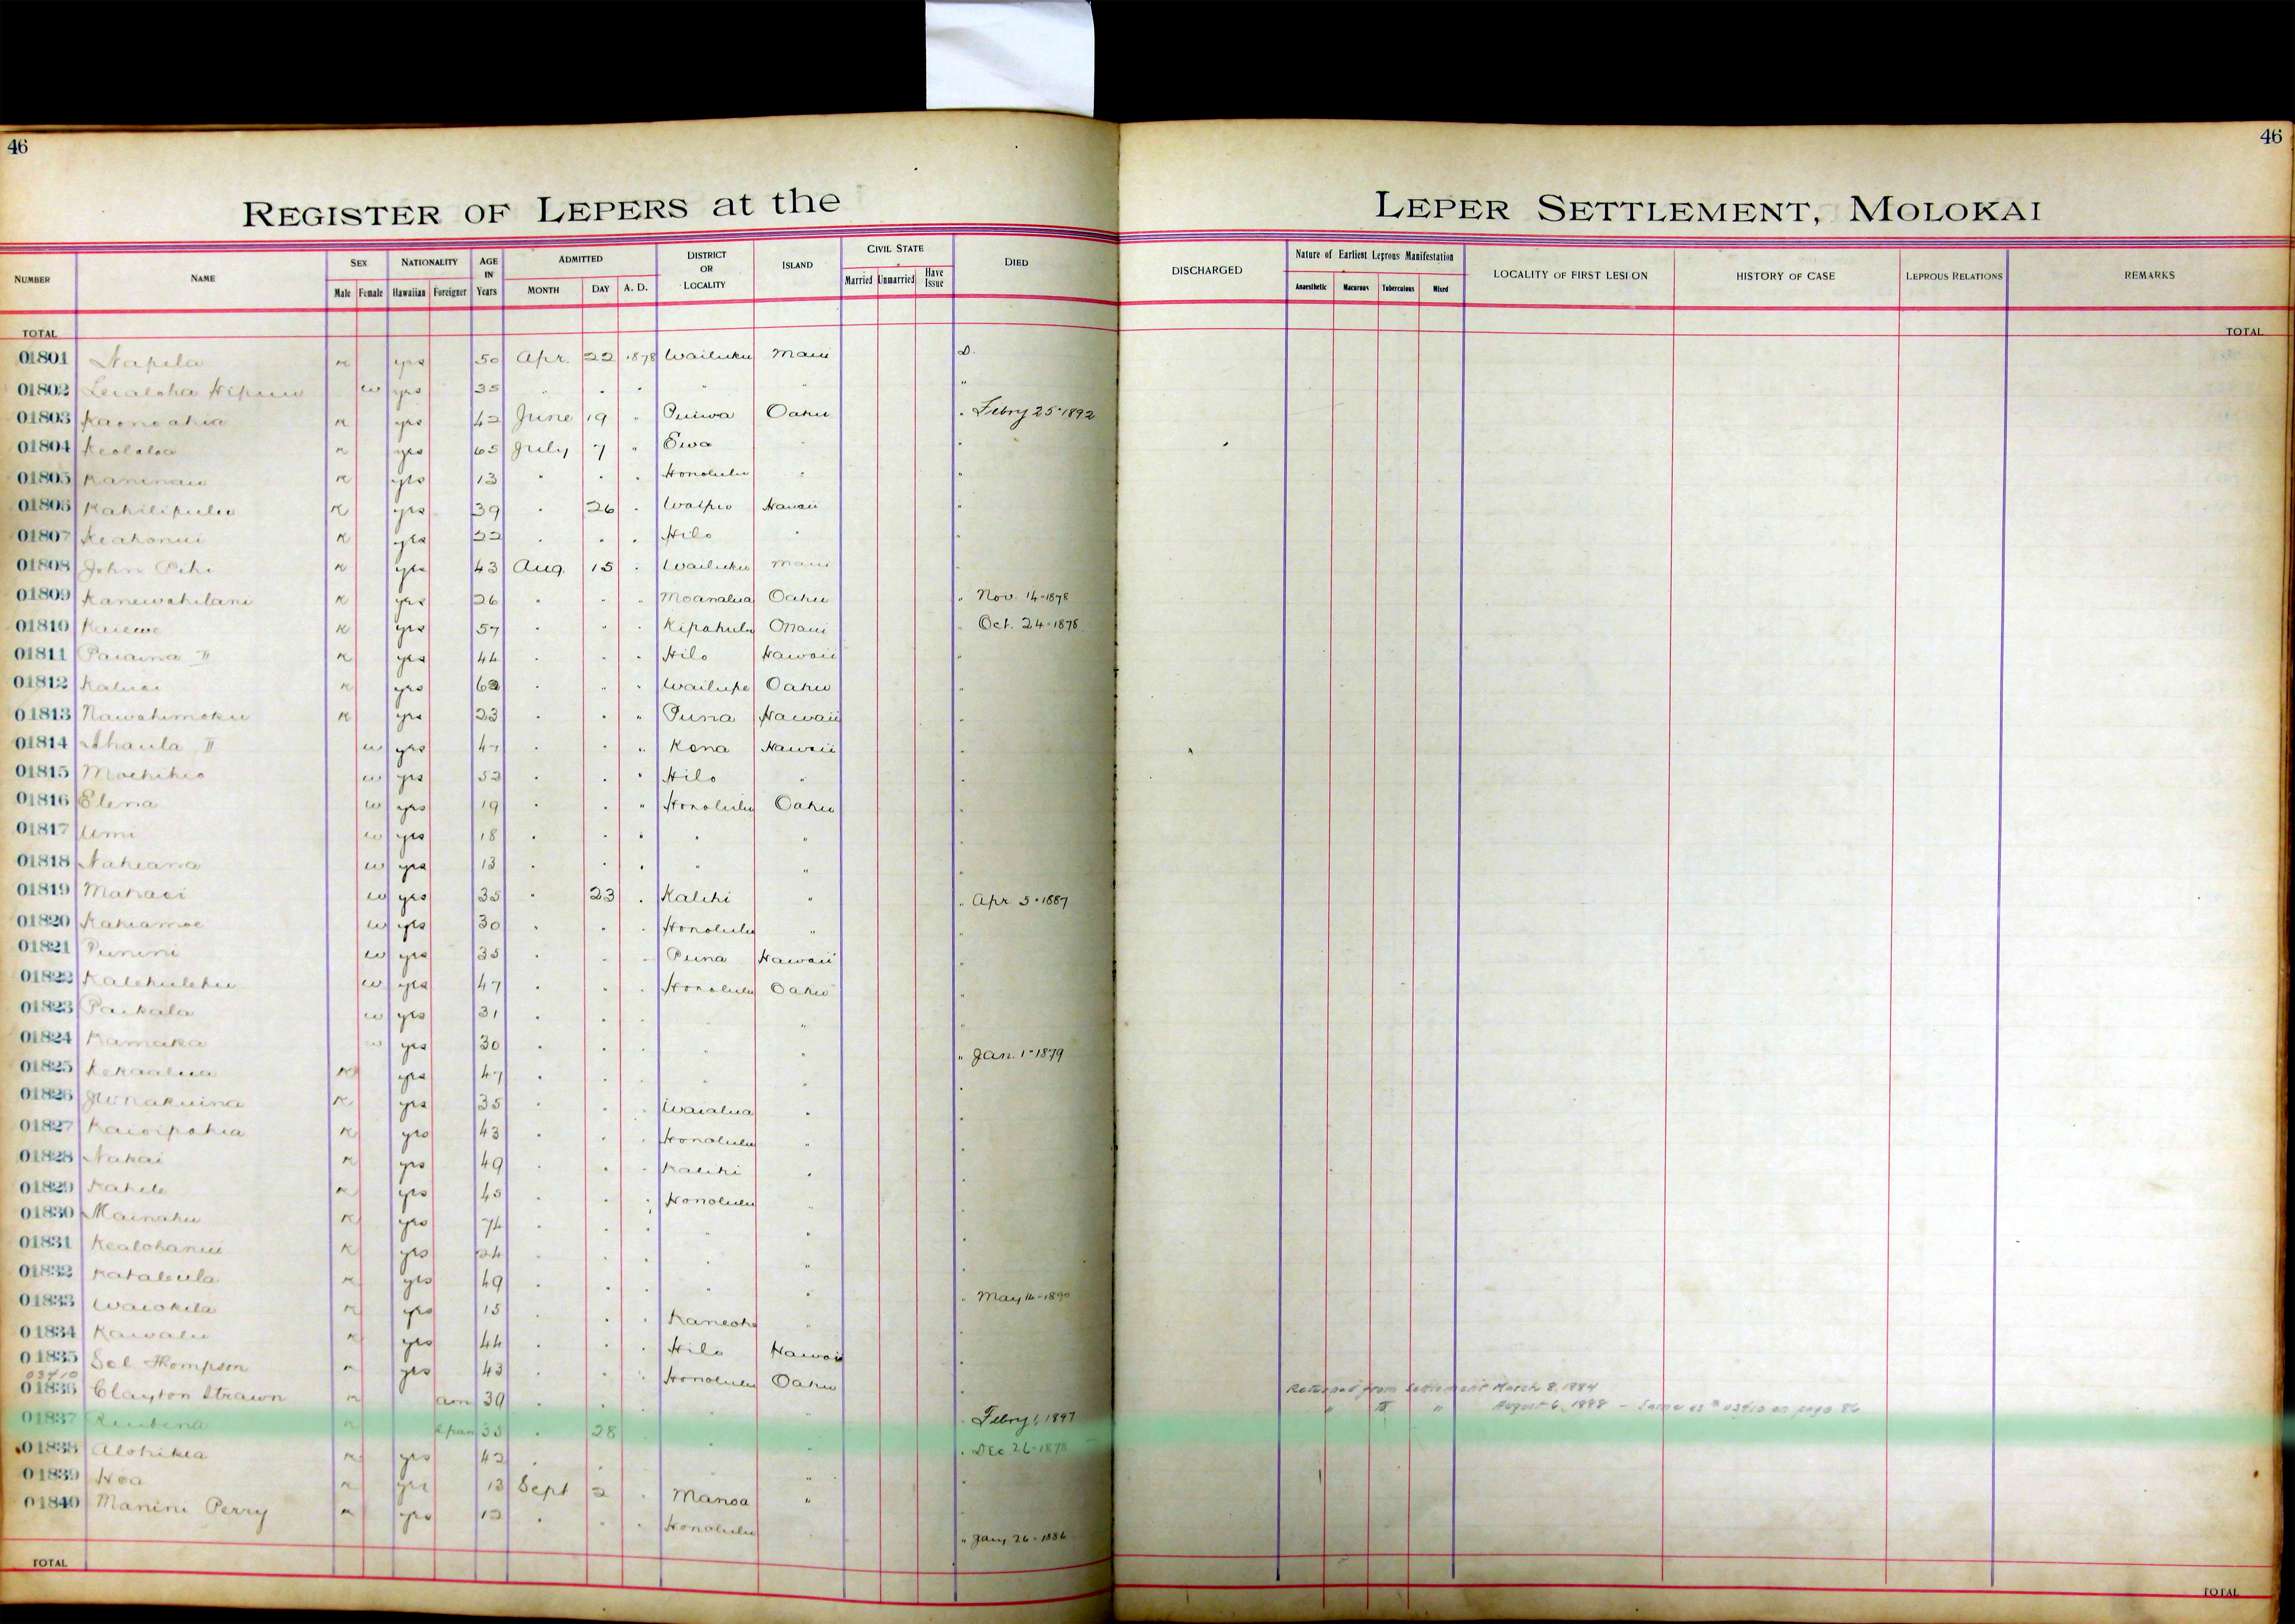 46
46
REGISTER OF LEPERS at the LEPER SETTLEMENT, MOLOKAI
NUMBER NAME SEX NATIONALITY AGE IN Years ADMITTED DISTRICT OR LOCALITY ISLAND CIVIL STATE DIED DISCHARGED Nature of Earliest Leprous Manifestation LOCALITY OF FIRST LESION HISTORY OF CASE LEPROUS RELATIONS REMARKS
Male Female Hawaiian Foreigner MONTH DAY A. D. Married Unmarried Have Issue Anaesthetic Macurous Tuberculous Mixed
TOTAL TOTAL
01801 Napela m yes 50 Apr. 22 1878 Wailuku Maui D.
01802 Lealoha w yes 35 " " " " " "
01803 Kaonoahia m yes 42 June 19 " Puiwa Oahu " Febry 25 1892
01804 Keololoa m yes 65 July 7 " Ewa " "
01805 Kaninau m yes 13 " " " Honolulu " "
01806 Kahilipulu m yes 39 " 26 " Waipio Hawaii "
01807 Keahonui m yes 22 " " " Hilo " "
01808 John m yes 43 Aug. 15 " Wailuku Maui "
01809 Kanewahilani m yes 26 " " " Moanalua Oahu " Nov. 14-1878
01810 Kaiewe m yes 57 " " " Kipahulu Maui " Oct. 24-1878
01811 Paiaina II m yes 44 " " " Hilo Hawaii "
01812 Kaluai m yes 62 " " " Wailupe Oahu "
01813 Nawahimoku m yes 23 " " " Puna Hawaii "
01814 Ahaula II w yes 47 " " " Kona Hawaii "
01815 w yes 52 " " " Hilo " "
01816 Elena w yes 19 " " " Honolulu Oahu "
01817 Umi w yes 18 " " " " " "
01818 Nakeana w yes 13 " " " " " "
01819 Mahaei w yes 35 " 23 " Kalihi " " Apr. 5-1887
01820 Kahiamoe w yes 30 " " " Honolulu " "
01821 Punini w yes 35 " " " Puna Hawaii "
01822 Kalehulehu w yes 47 " " " Honolulu Oahu "
01823 Paikala w yes 31 " " " " "
01824 Kamaka w yes 30 " " " " " " Jan. 1-1879
01825 Kekaalua m yes 47 " " " " " "
01826 m yes 35 " " " Waialua " "
01827 Kaioipohia m yes 43 " " " Honolulu " "
01828 Nakai m yes 49 " " " Kalihi " "
01829 Kahele m yes 45 " " " Honolulu " "
01830 Mainahu m yes 74 " " " " " "
01831 Kealohanui m yes 24 " " " " " "
01832 m yes 49 " " " " " " May 14-1890
01833 Waiokila m yes 15 " " " Kaneohe " "
01834 Kawalu m yes 44 " " " Hilo Hawaii "
01835 Sol Thompson m yes 43 " " " Honolulu Oahu "
03410
01836 Clayton Strawn m am 39 " " " " " " Febry 1, 1897 Returned from Settlement March 8, 1884
" " August 6, 1888 - Same as # 03410 on page 86
01837 Reubena m Span 35 " 28 " " " " Dec 26-1878
01838 Alohikea m yes 42 " " " "
01839 Hoa m yes 13 Sept 2 " Manoa "
01840 Manini Perry m yes 12 " " " Honolulu " Jany 26-1886
TOTAL TOTAL